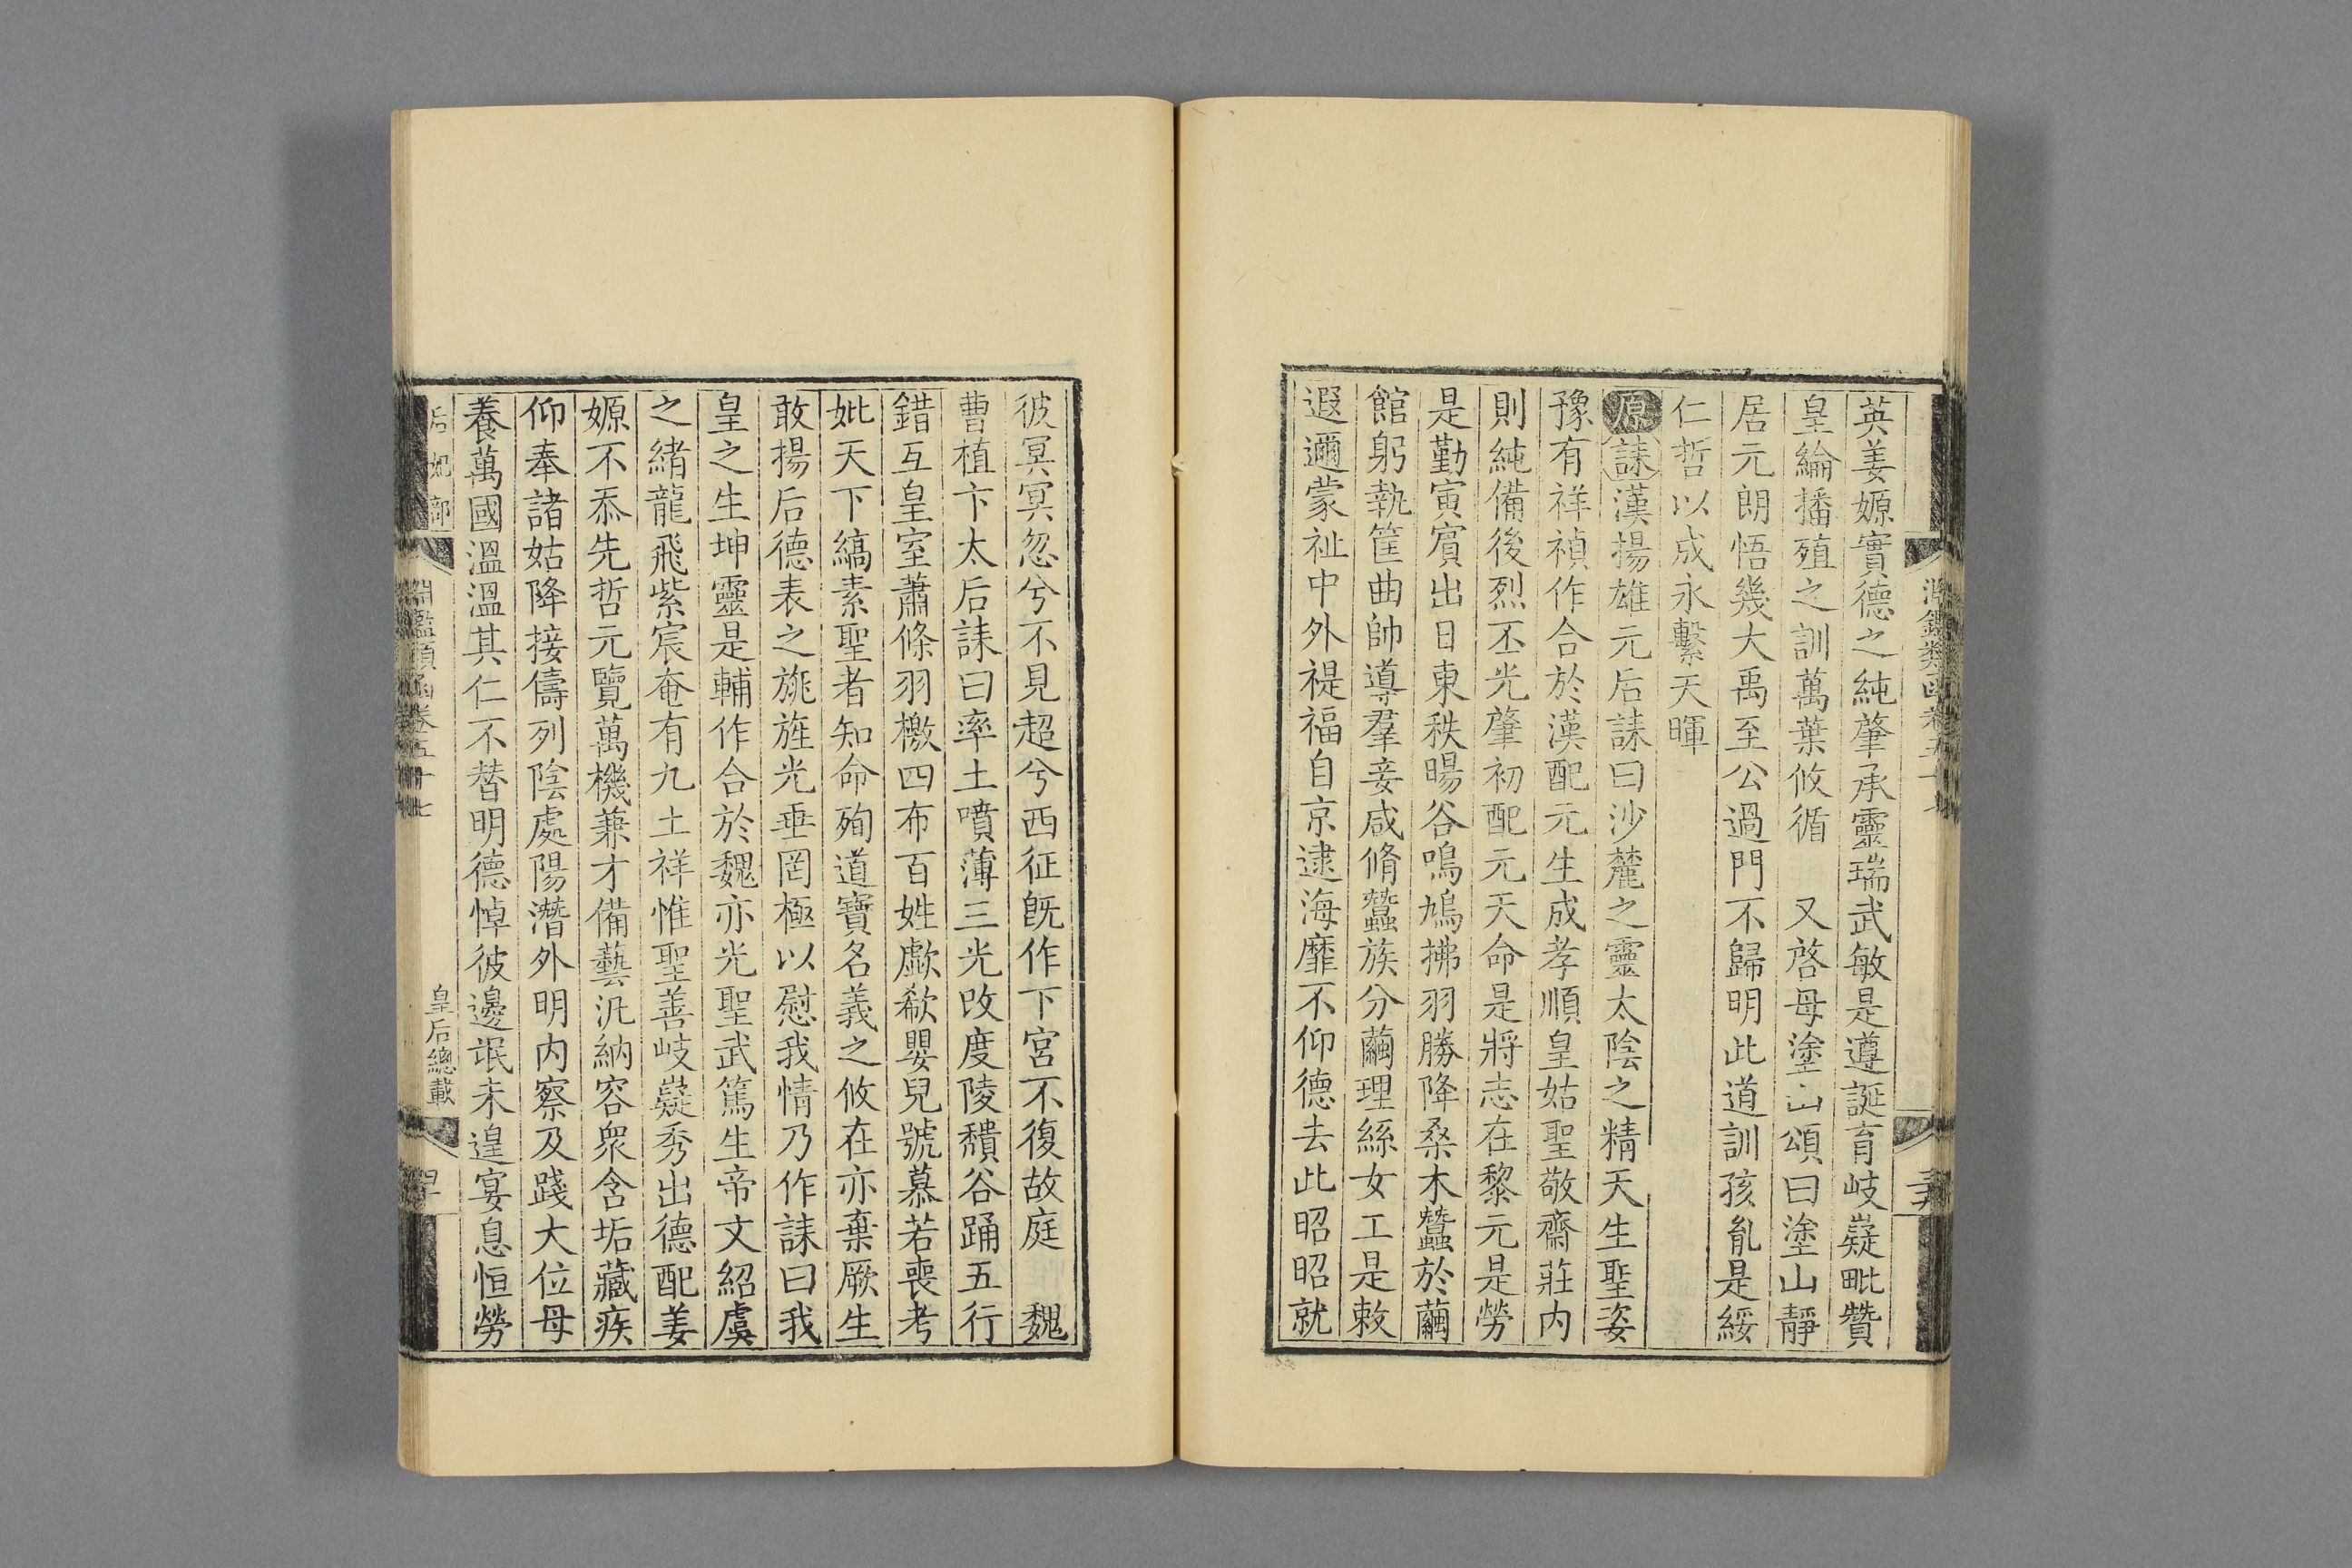 英姜嫄實德之純肇承靈瑞武敏是遵誕育岐嶷毗贊
皇綸播殖之訓萬葉攸循　又啓母塗山頌曰塗山靜
居元朗悟幾大禹至公過門不歸明此道訓孩胤是綏
仁哲以成永繫天暉
原誄漢揚雄元后誄曰沙麓之靈太陰之精天生聖姿
豫有祥禎作合於漢配元生成孝順皇姑聖敬齋莊内
則純備後烈丕光肇初配元天命是將志在黎元是勞
是勤寅賔出日東秩暘谷鳴鳩拂羽勝降桑木蠶於繭
館躬執筐曲帥導羣妾咸脩蠶族分繭理絲女工是敕
遐邇蒙祉中外禔福自京逮海靡不仰德去此昭昭就
彼冥冥忽兮不見超兮西征旣作下宮不復故庭　魏
曹植卞太后誄曰率土噴薄三光改度陵穨谷踊五行
錯互皇室蕭條羽檄四布百姓歔欷嬰兒號慕若喪考
妣天下縞素聖者知命殉道寶名義之攸在亦棄厥生
敢揚后德表之旐旌光垂罔極以慰我情乃作誄曰我
皇之生坤靈是輔作合於魏亦光聖武篤生帝文紹虞
之緒龍飛紫宸奄有九土祥惟聖善岐嶷秀出德配姜
嫄不忝先哲元覽萬機兼才備藝汎納容衆含垢藏疾
仰奉諸姑降接儔列陰處陽潛外明内察及踐大位母
養萬國溫溫其仁不替明德悼彼邊氓未遑宴息恒勞
后妃部
淵鑑類函卷五十七
皇后總載